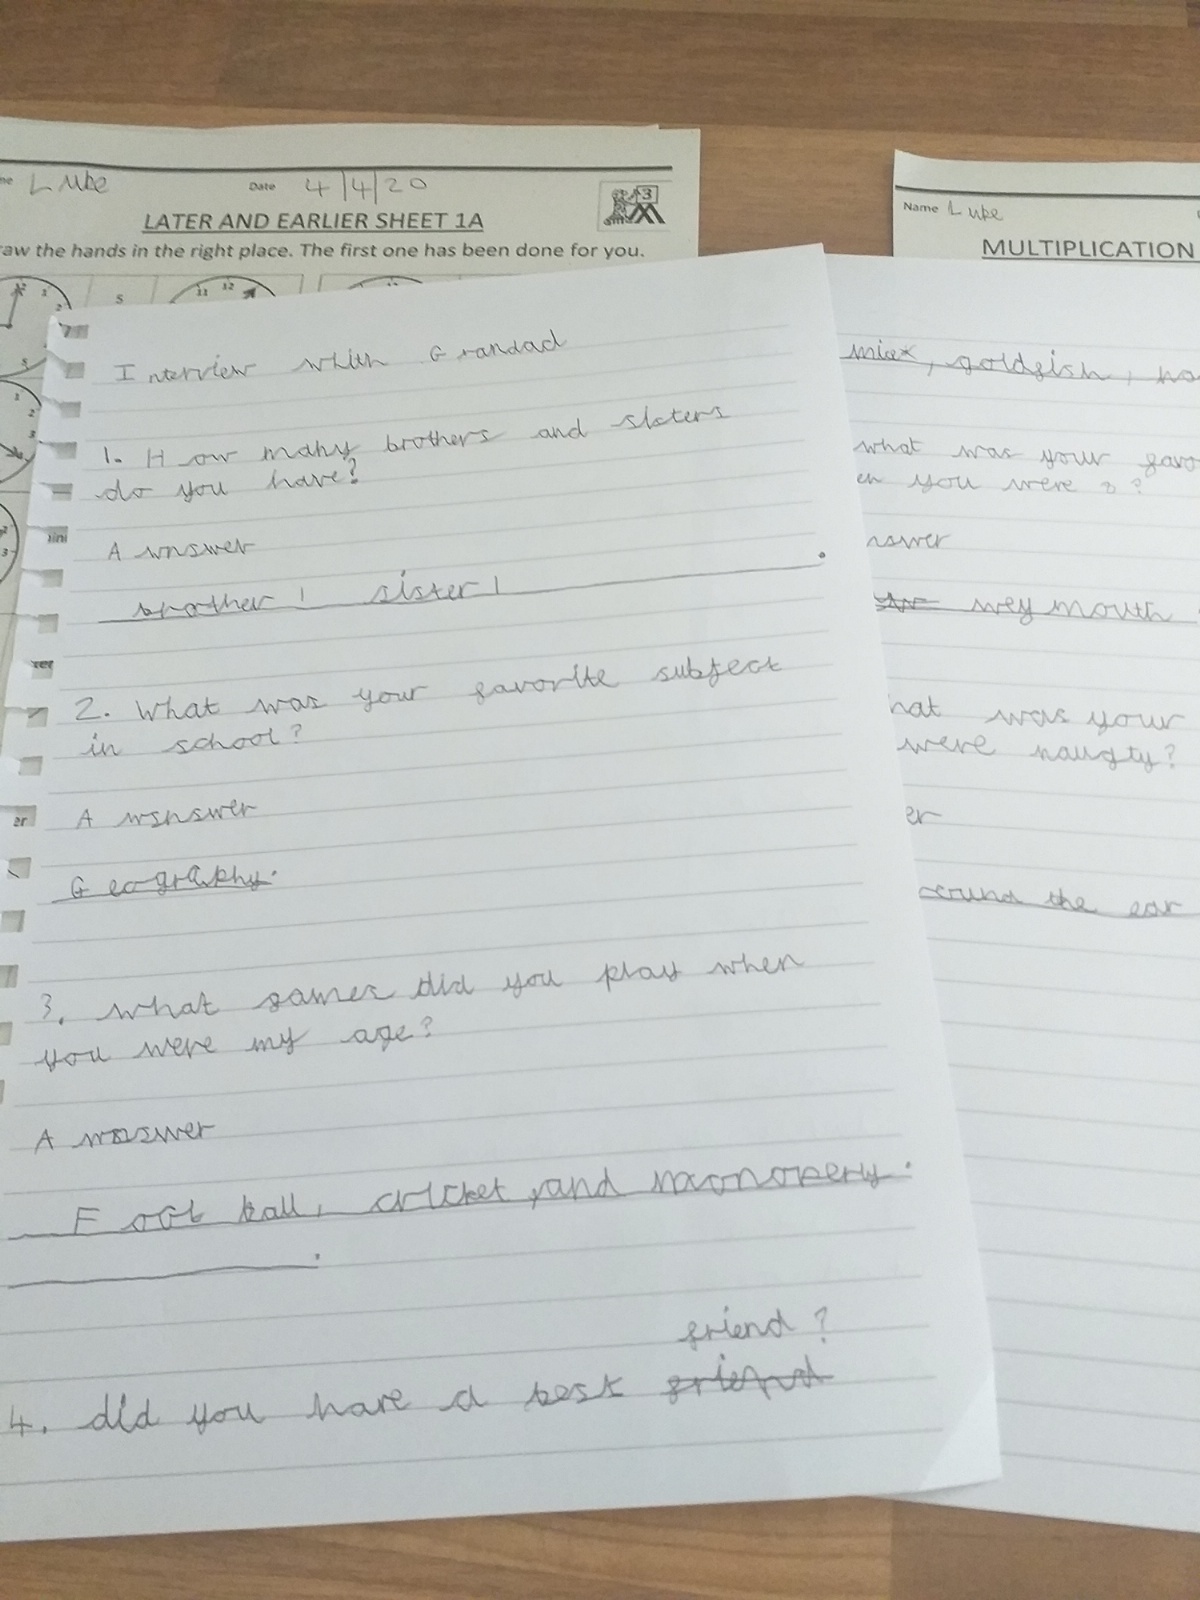 Luke
Date 4/4/20
3
LATER AND EARLIER SHEET 1A
raw the hands in the right place. The first one has been done for you.
11 12
5
Name Luke
MULTIPLICATION
Interview whith Grandad
1. How many brothers and sisters
do you have?
Answer
brother 1 sister 1
2. What was your favorite subject
in school?
Geography.
3. What games did you play when
you were my age?
Answer
Foot ball, cricket, and
friend?
4. did you have a best friend
goldfish,
what was your favo
en you were 8?
nswer
weymouth
hat was your
were naugty?
er
the ear